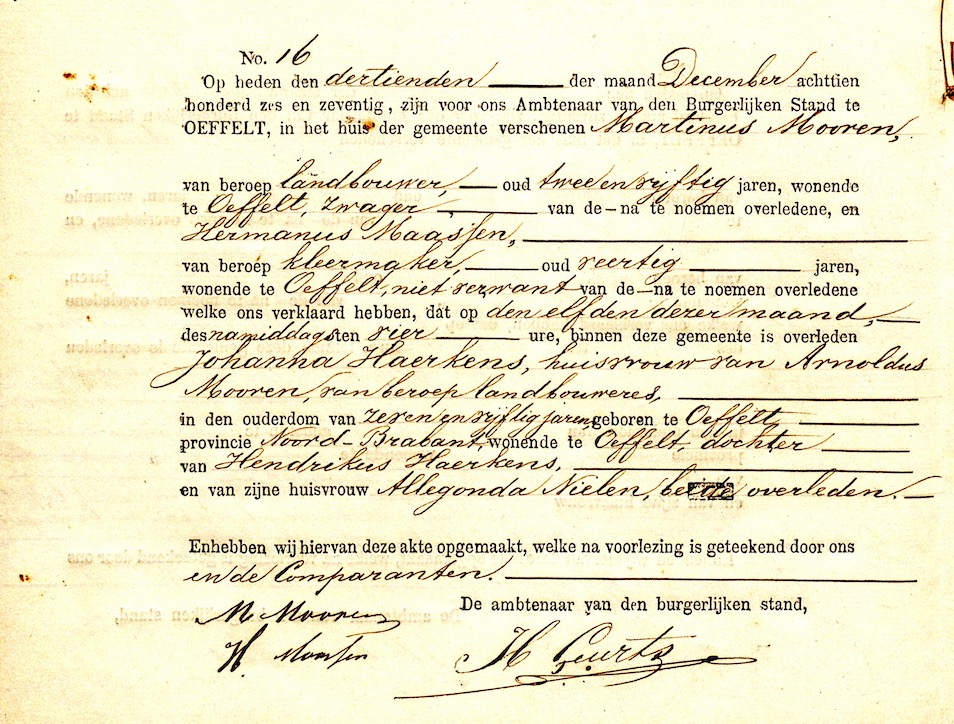 No. 16
Op heden den dertienden der maand December achttien
honderd zes en zeventig, zijn voor ons Ambtenaar van den Burgerlijken Stand te
OEFFELT, in het huis der gemeente verschenen Martinus Mooren,
van beroep landbouwer, oud twee en vijftig jaren, wonende
te Oeffelt, zwager, van de – na te noemen overledene, en
Hermanus Maassen,
van beroep kleermaker, oud veertig jaren,
wonende te Oeffelt, niet verwant van de – na te noemen overledene
welke ons verklaard hebben, dat op den elfden dezer maand,
des namiddags ten vier ure, binnen deze gemeente is overleden
Johanna Haerkens, huisvrouw van Arnoldus
Mooren, van beroep landbouweres,
in den ouderdom van zeven en vijftig jaren geboren te Oeffelt
provincie Noord-Brabant, wonende te Oeffelt, dochter
van Hendrikus Haerkens,
en van zijne huisvrouw Allegonda Nielen, beide overleden.
Enhebben wij hiervan deze akte opgemaakt, welke na voorlezing is geteekend door ons
en de Comparanten.
De ambtenaar van den burgerlijken stand,
M Mooren
H Maassen
H Geurts